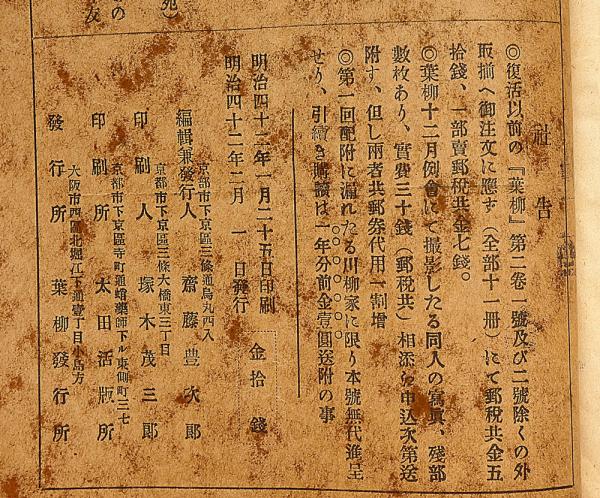 社告
◎復活以前の『葉柳』第二卷一號及び二號除くの外
取揃へ御注文に應ず（全部十一冊）にて郵税共金五
拾錢、一部賣郵税共金七錢。
◎葉柳十二月例會にて撮影したる同人の寫眞、殘部
數枚あり、實費三十錢（郵税共）相添る申込次第送
附す、但し兩者共郵券代用一割増
◎第一回配附に漏れたる川柳家に限り本號無代進呈
せり、引續き購讀は一年分前金壹圓送附の事
明治四十二年一月二十五日印刷
明治四十二年二月一日發行
金拾錢
京都市下京區三條通烏丸西入
編輯兼發行人 齋藤豊次郎
京都市下京區三條大橋東三丁目
印刷人 塚木茂三郎
京都市下京區寺町通蛸藥師下ル東側町三七
印刷所 太田活版所
大阪市西區北堀江下通壹丁目小島方
發行所 葉柳發行所
死）
の
友